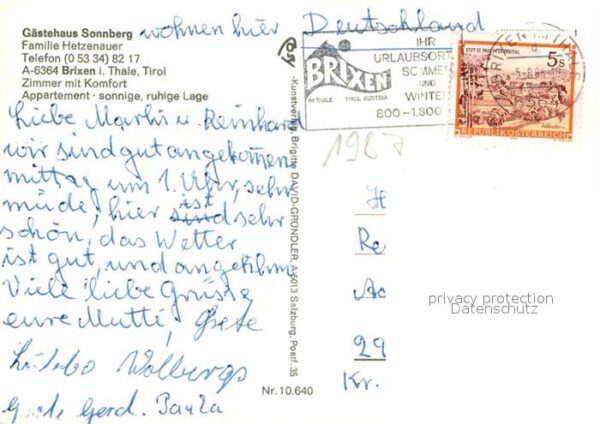 Gästehaus Sonnberg
Familie Hetzenauer
Telefon (0 53 34) 82 17
A-6364 Brixen i. Thale, Tirol
Zimmer mit Komfort
Appartement · sonnige, ruhige Lage
wohnen hier
Liebe Martin u. Reinhard
wir sind gut angekommen
mittag um 1. Uhr, sehr
müde, hier ist sehr
schön, das Wetter
ist gut, und angenehm
Viele liebe Grüsse
eure Mutti, Grete
Gerd.
Kunstverlag Brigitte DAVID-GRÜNDLER, A-5013 Salzburg, Postf. 35
Nr. 10.640
Deutschland
BRIXEN
IM THALE TIROL AUSTRIA
IHR
URLAUBSORT
SOMMER
UND
WINTER
800-1.800
BRIXEN IM THALE
5s
REPUBLIK ÖSTERREICH
1987
H
Re
Ac
29
Kr.
privacy protection
Datenschutz